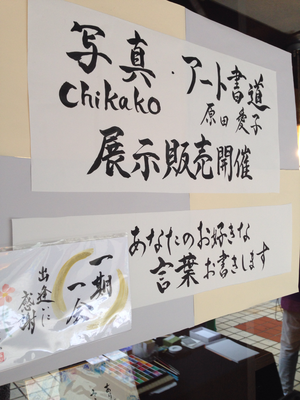 写真・アート書道
Chikako 原田愛子
展示販売開催
あなたのお好きな
言葉お書きします
一期
一会
出逢いに
感謝